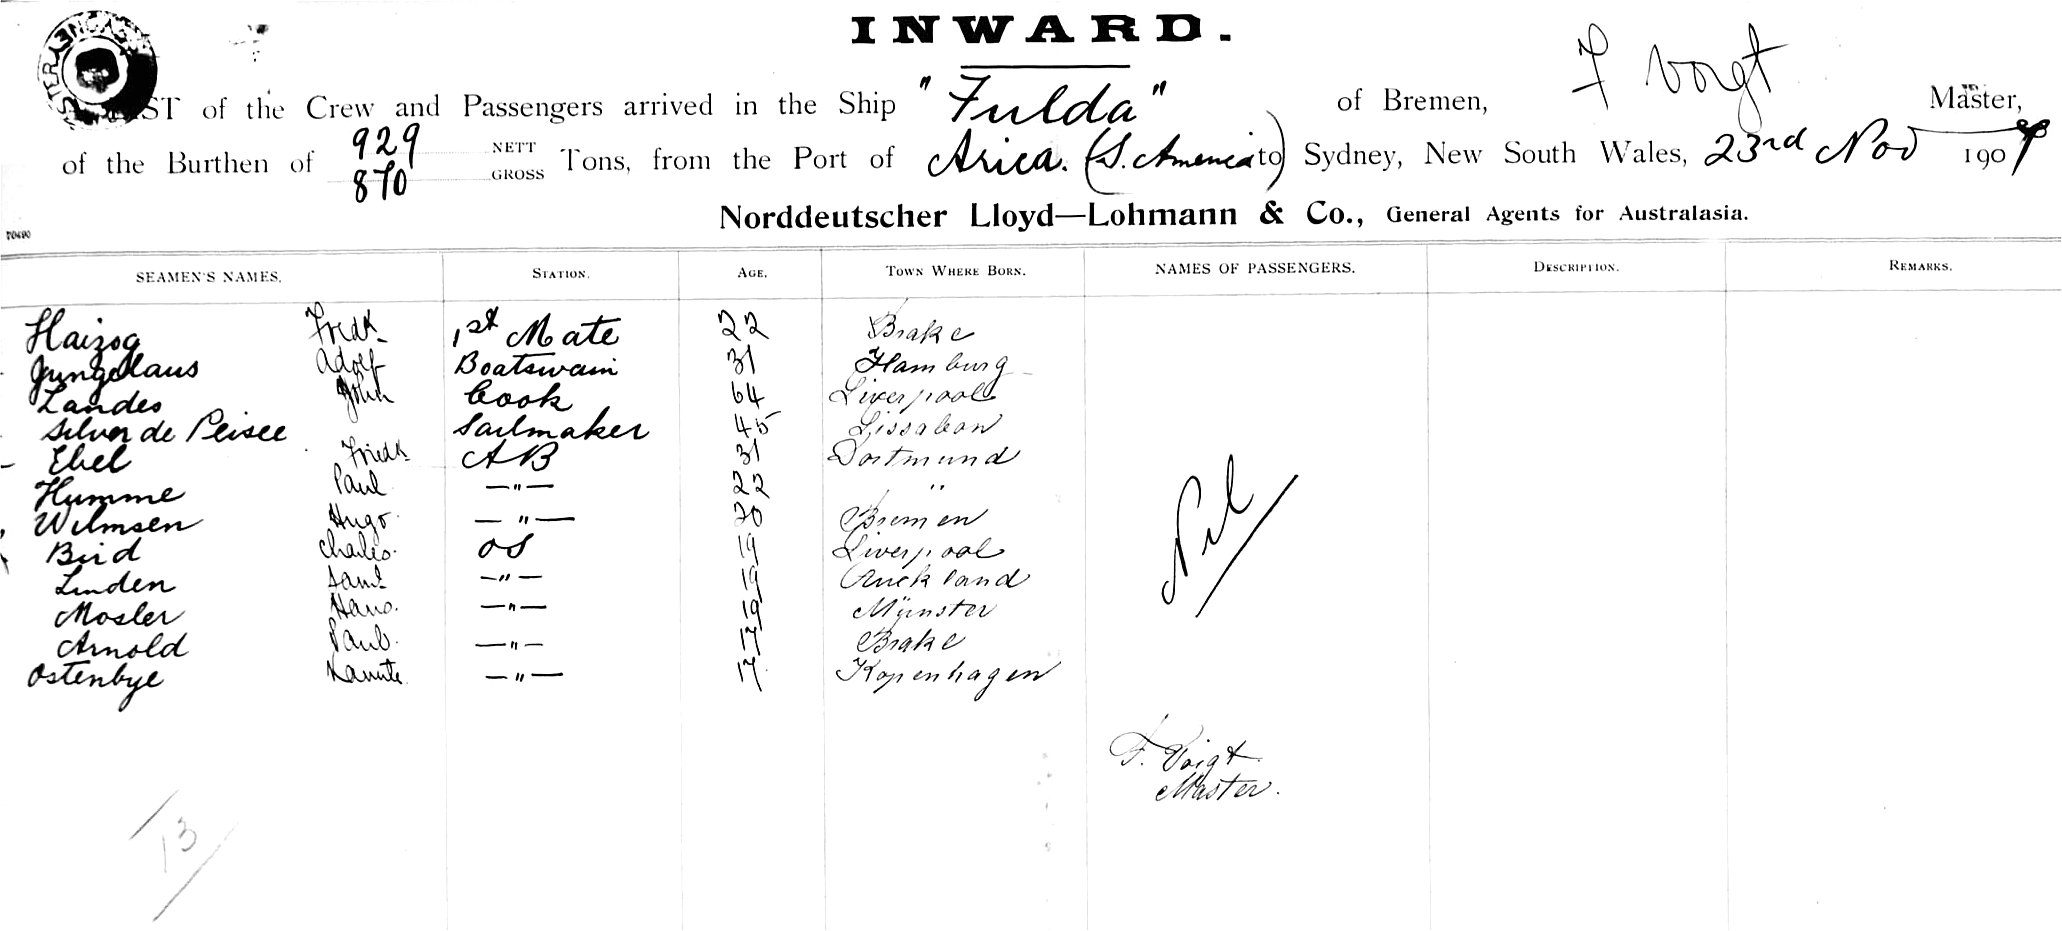 INWARD.
LIST of the Crew and Passengers arrived in the Ship "Fulda" of Bremen, F Voigt Master,
of the Burthen of 929 NETT 870 GROSS Tons, from the Port of Arica. (S. America to) Sydney, New South Wales, 23rd Nov 190
Norddeutscher Lloyd—Lohmann & Co., General Agents for Australasia.
SEAMEN'S NAMES. STATION. AGE. TOWN WHERE BORN. NAMES OF PASSENGERS. DESCRIPTION. REMARKS.
Haizog Fredk 1st Mate 22 Brake
Jungclaus Adolf Boatswain 31 Hamburg
Landes John Cook 64 Liverpool
Silver de Peisee Sailmaker 45 Lissabon
Ebel Friedk AB 31 Dortmund
Humme Paul —"— 22 "
Wilmsen Hugo. —"— 20 Bremen
Bird Charles. OS 19 Liverpool
Linden Saml —"— 19 Auckland
Mosler Hans. —"— 19 Münster
Arnold Paul. —"— 17 Brake
Ostenbye —"— 17 Kopenhagen
Nil
F. Voigt
Master.
13